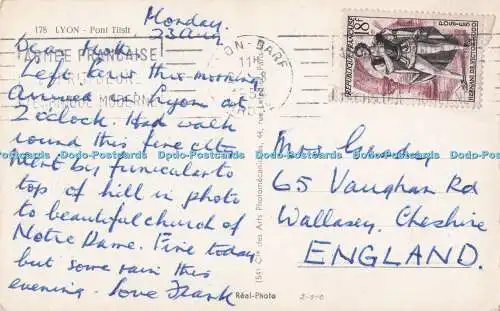 178 LYON - Pont Tilsit
Monday.
23 Aug
LYON-GARE
11H
ARMEE FRANCAISE
MODERNE
Left here this morning
Arrived at Lyon at
2 o'clock. Had walk
round this fine city
Went by funicular to
top of hill in photo
to beautiful church of
Notre Dame. Fine today
but some rain this
evening. Love Frank
(54) Cie des Arts Photomécaniques, 44, rue
Réel-Photo
2-9-0
REPUBLIQUE FRANÇAISE
8F
POSTES
Mrs
65 Vaughan Rd
Wallasey. Cheshire
ENGLAND.
Dodo-Postcards Dodo-Postcards Dodo-Postcards Dodo-Postcards